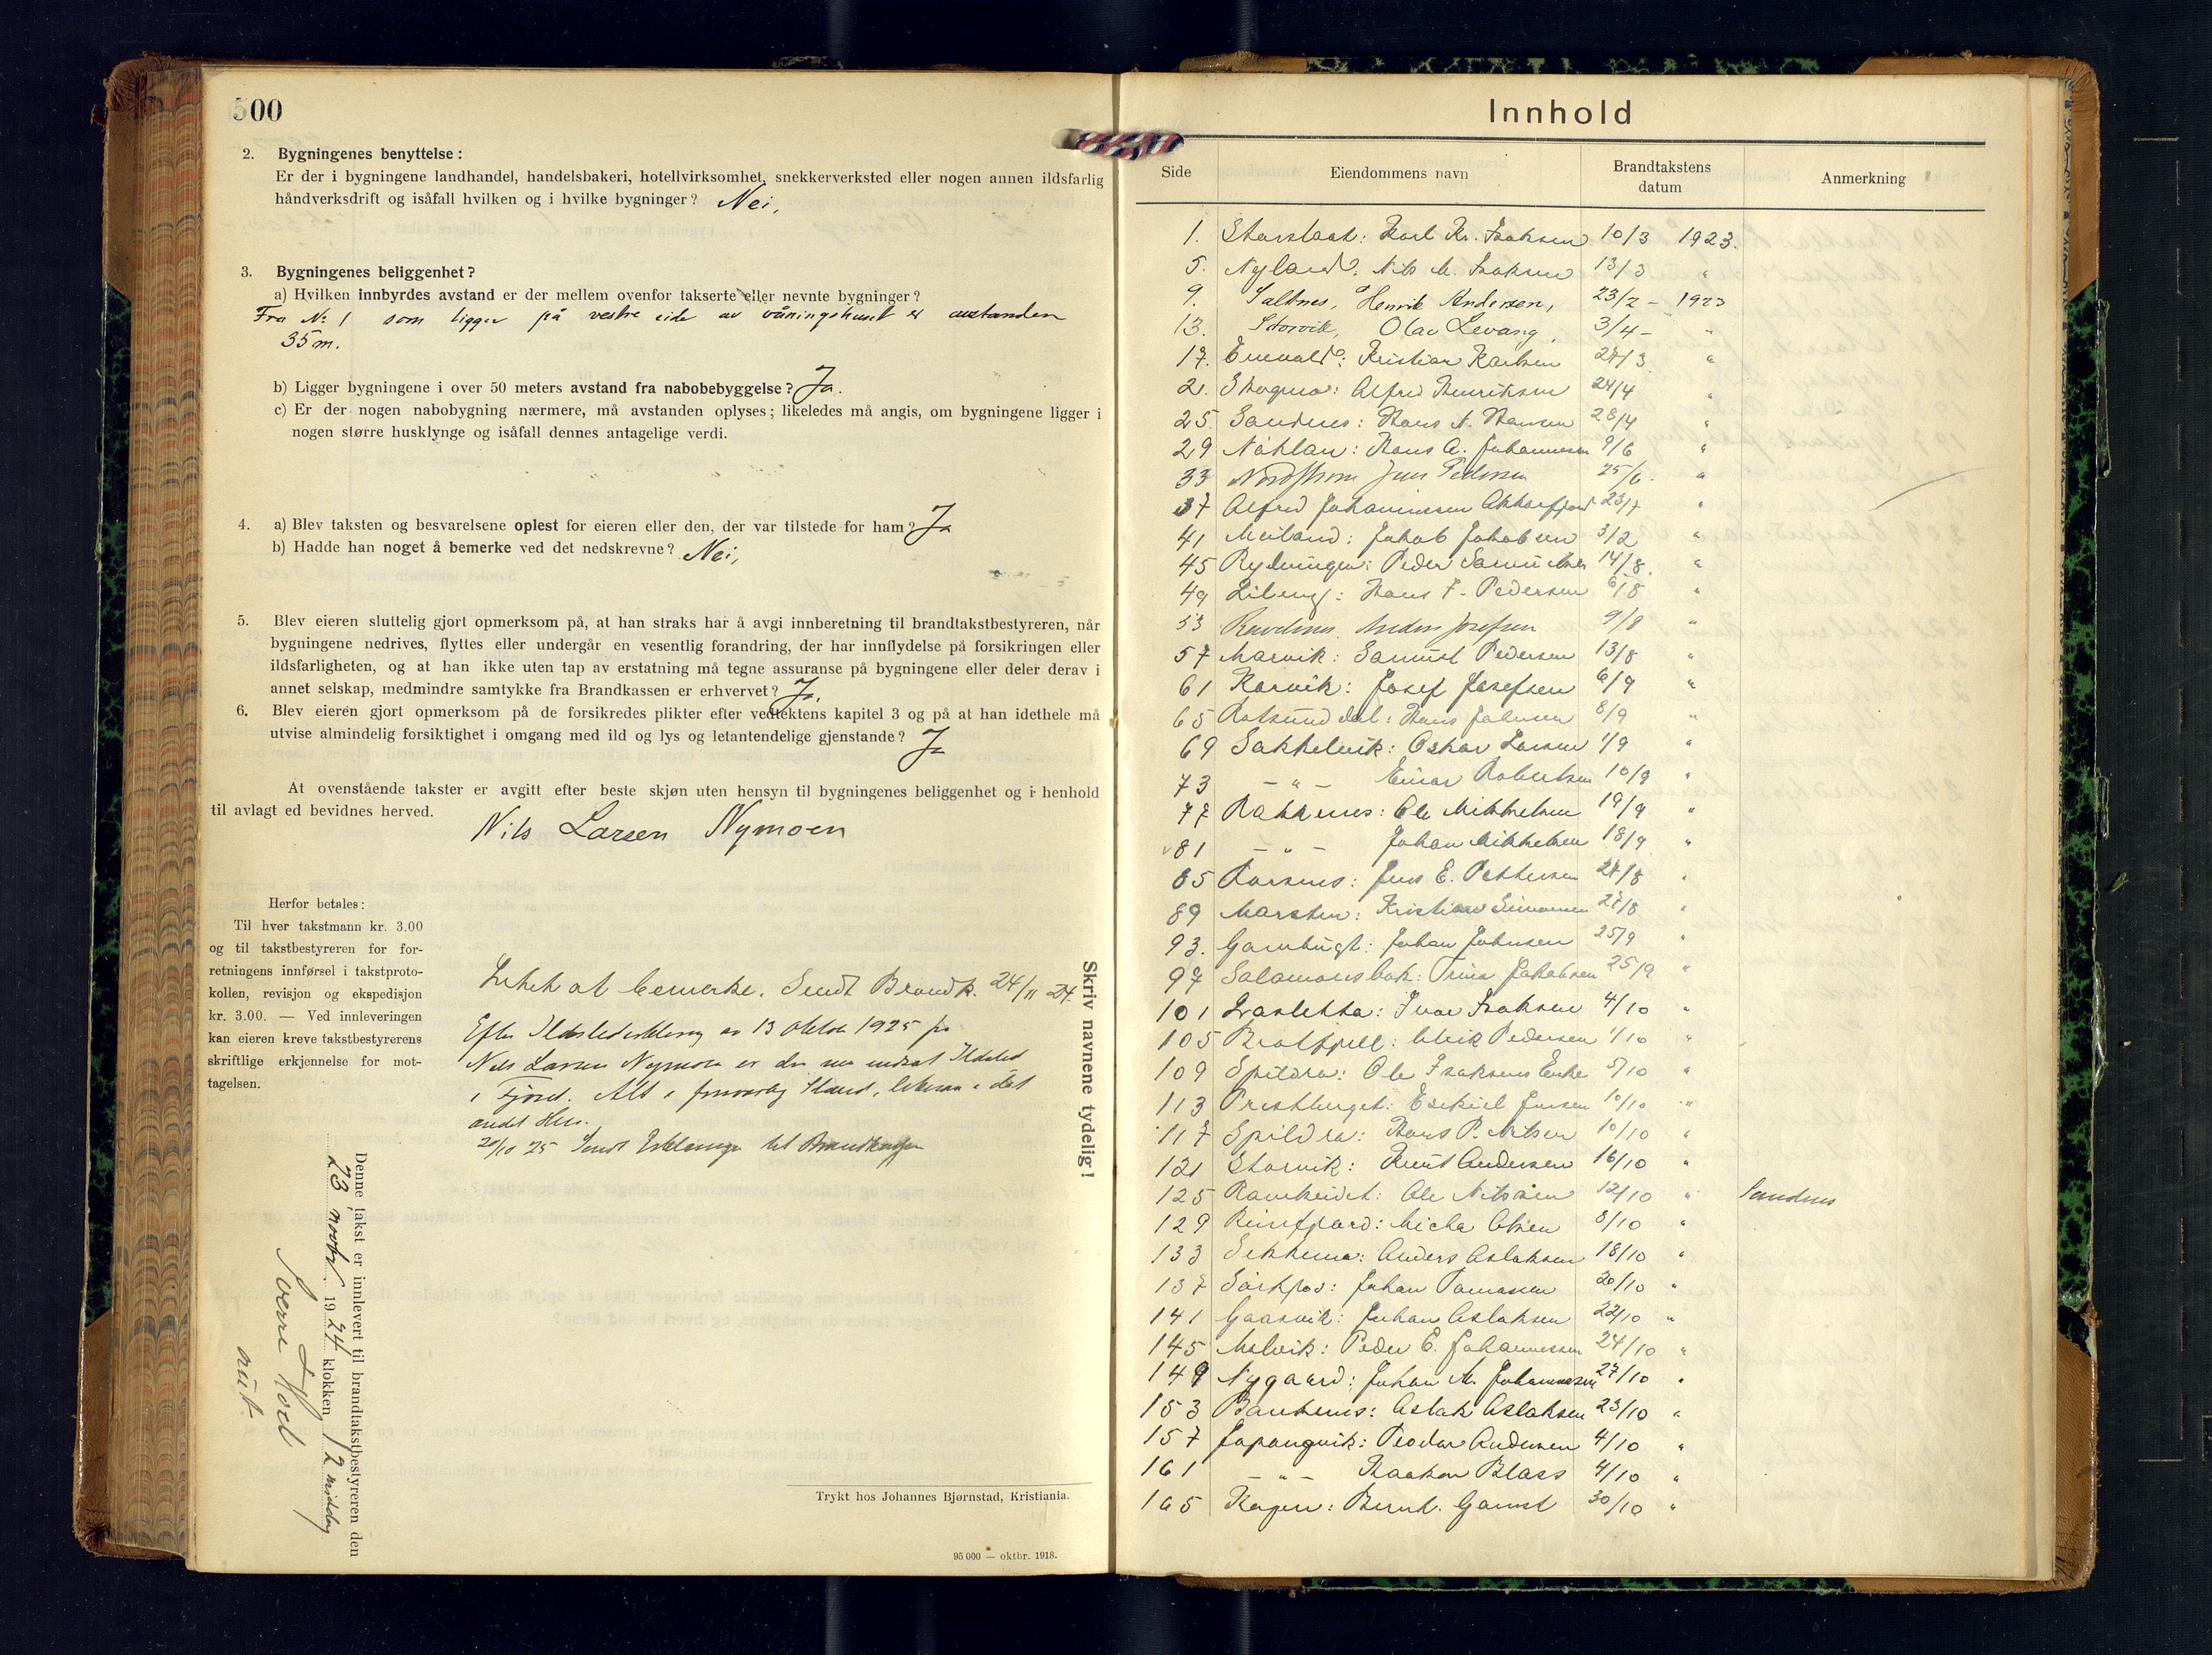 500
2. Bygningenes benyttelse:
Er der i bygningene landhandel, handelsbakeri, hotellvirksomhet, snekkerverksted eller nogen annen ildsfarlig
håndverksdrift og isåfall hvilken og i hvilke bygninger? Nei,
3. Bygningenes beliggenhet?
a) Hvilken innbyrdes avstand er der mellem ovenfor takserte eller nevnte bygninger?
Fra No 1 som ligger på vestre side av våningshuset er avstanden
35 m.
b) Ligger bygningene i over 50 meters avstand fra nabobebyggelse? Ja.
c) Er der nogen nabobygning nærmere, må avstanden oplyses; likeledes må angis, om bygningene ligger i
nogen større husklynge og isåfall dennes antagelige verdi.
4. a) Blev taksten og besvarelsene oplest for eieren eller den, der var tilstede for ham? Ja
b) Hadde han noget å bemerke ved det nedskrevne? Nei,
5. Blev eieren sluttelig gjort opmerksom på, at han straks har å avgi innberetning til brandtakstbestyreren, når
bygningene nedrives, flyttes eller undergår en vesentlig forandring, der har innflydelse på forsikringen eller
ildsfarligheten, og at han ikke uten tap av erstatning må tegne assuranse på bygningene eller deler derav i
annet selskap, medmindre samtykke fra Brandkassen er erhvervet? Ja.
6. Blev eieren gjort opmerksom på de forsikredes plikter efter vedtektens kapitel 3 og på at han idethele må
utvise almindelig forsiktighet i omgang med ild og lys og letantendelige gjenstande? Ja
At ovenstående takster er avgitt efter beste skjøn uten hensyn til bygningenes beliggenhet og i henhold
til avlagt ed bevidnes herved.
Nils Larsen Nymoen
Herfor betales:
Til hver takstmann kr. 3.00
og til takstbestyreren for for-
retningens innførsel i takstproto-
kollen, revisjon og ekspedisjon
kr. 3.00. — Ved innleveringen
kan eieren kreve takstbestyrerens
skriftlige erkjennelse for mot-
tagelsen.
Intet at bemerke. Sendt Brandk. 24/11 24.
Efter Ildstederklæring av 13 oktober 1925 fra
Nils Larsen Nymoen er der nu indsat Ildsted
i Fjøset. Alt i forsvarlig Stand, likesaa i det
andet Hus.
20/10 25 Sendt Erklæringen til Brandkassen
Skriv navnene tydelig!
Denne takst er innlevert til brandtakstbestyreren den
23 novbr. 1924 klokken 12 middag
Sverre
aut.
Trykt hos Johannes Bjørnstad, Kristiania.
95 000 — oktbr. 1918.
Innhold
Side Eiendommens navn Brandtakstens datum Anmerkning
1. Storslaat: Karl Kr. Isaksen 10/3 1923.
5. Nyland: Nils M. Isaksen 13/3 "
9. Saltnes, Henrik Andersen, 23/2 - 1923
13. Storvik, Olav Levang, 3/4 - "
17. Enevald: Kristian Karlsen 24/3 "
21. Skogmo: Alfred Henriksen 24/4 "
25. Sandnes: Hans N. Hansen 28/4 "
29 Hans A. Johannesen 9/6 "
33 Nordstrøm Jens Pedersen 25/6. "
37 Alfred Johannessen Akkarfjord 23/7 "
41 Meiland: Jakob Jakobsen 3/2 "
45 Rydningen: Peder Samuelsen 14/8. "
49 Lileng: Hans F. Pedersen 6/8 "
53 Anders Josefsen 9/8 "
57 Marvik: Samuel Pedersen 13/8 "
61 Karvik: Josef Josefsen 6/9 "
65 Rotsunddal: Hans Johnsen 8/9 "
69 Sakkelvik: Oskar Larsen 1/9 "
73 - " - Einar Robertsen 10/9 "
77 Rakkenes: Ole Mikkelsen 19/9 "
81 - " - Johan Mikkelsen 18/9 "
85 Korsnes: Jens E. Pettersen 24/8 "
89 Marsten: Kristian Simonsen 27/8 "
93. Gambugt: Johan Johnsen 25/9 "
97 Salamonsbak: Trina Jakobsen 25/9 "
101 Lasletta: Ivar Isaksen 4/10 "
105 Bratfjell: Ulrik Pedersen 1/10 "
109 Spildra: Ole Isaksens Enke 5/10 "
113 Prestberget: Esekiel Jensen 10/10 "
117 Spildra: Hans P. Nilsen 10/10 "
121 Storvik: Knut Andersen 16/10 "
125 Ravelseidet: Ole Nilssen 12/10 " Sandnes
129 Reinfjord: Micha Olsen 8/10 "
133 Sekkemo: Anders Aslaksen 18/10 "
137 Sørkjos: Johan Tomassen 20/10 "
141 Gaasvik: Johan Aslaksen 22/10 "
145 Molvik: Peder E. Johannessen 24/10 "
149 Nygaard: Johan M. Johannessen 27/10 "
153 Aslak Aslaksen 23/10 "
157 Jøpangvik: Peder Andersen 4/10 "
161 - " - Haakon Blass 4/10 "
165 Kagen: Bernt. Gamst 30/10 "